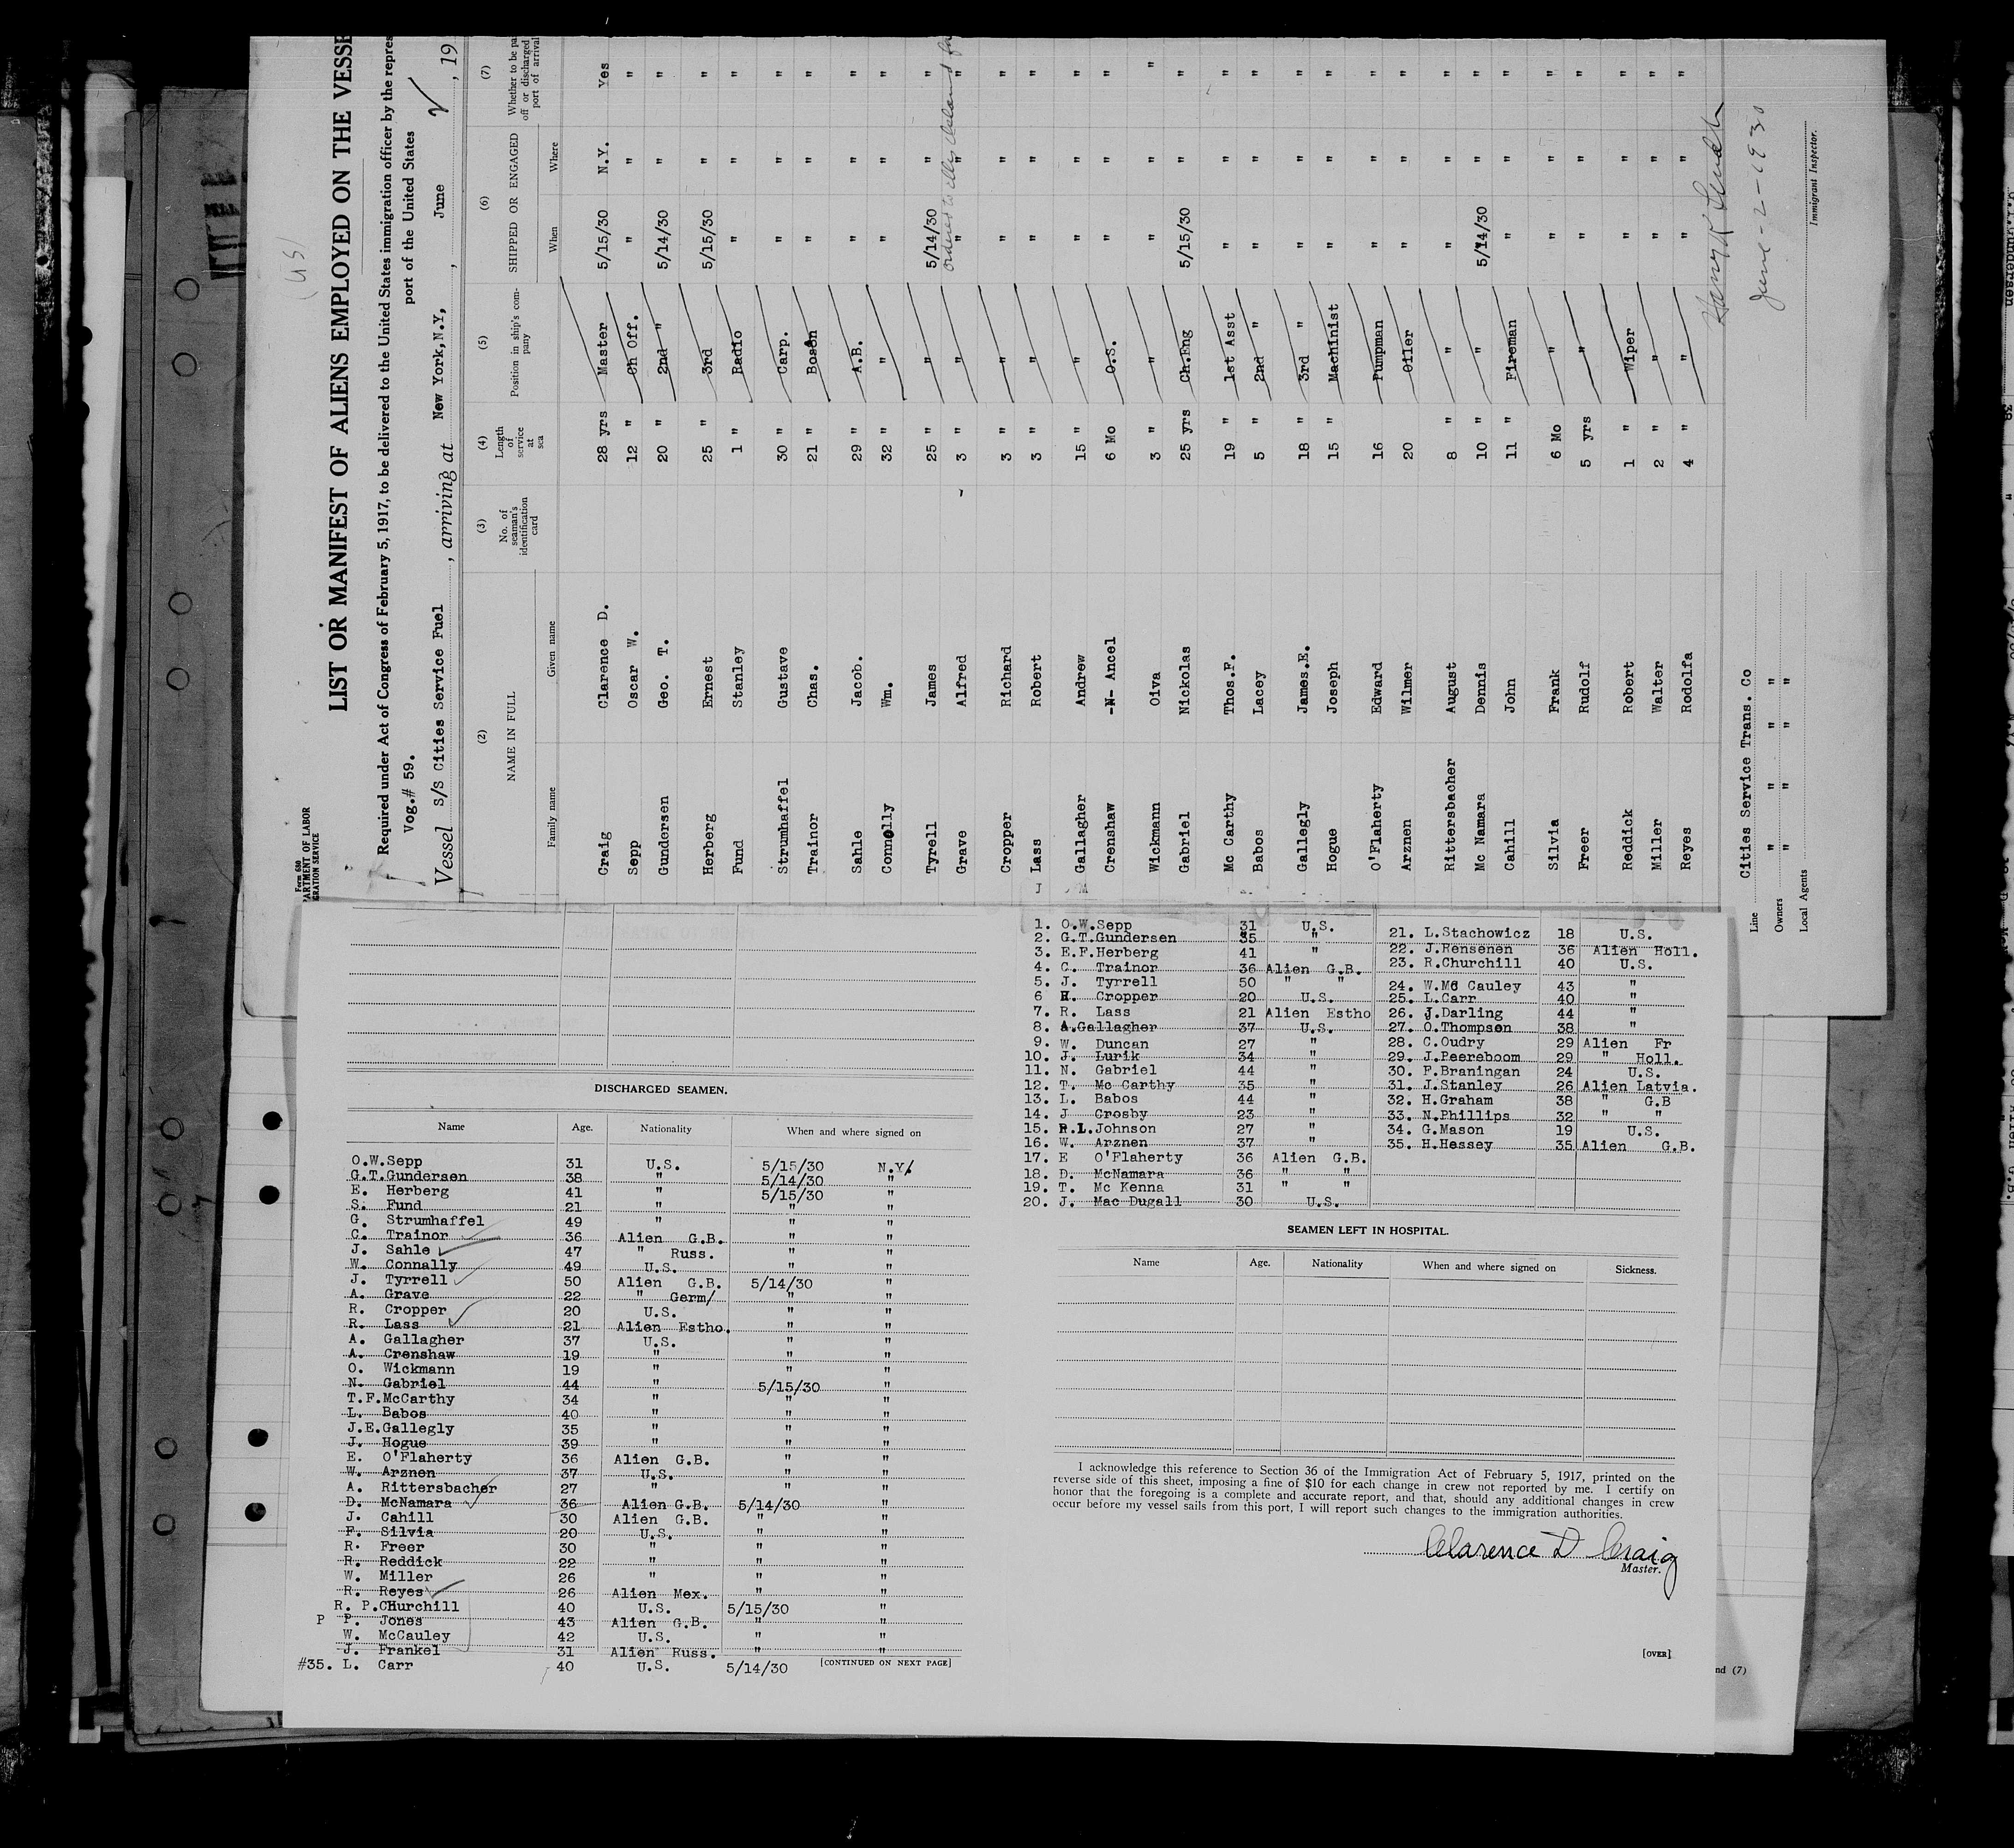 (US)
Form 680
ARTMENT OF LABOR
GRATION SERVICE
LIST OR MANIFEST OF ALIENS EMPLOYED ON THE VESSE
Required under Act of Congress of February 5, 1917, to be delivered to the United States immigration officer by the repres
Vog.# 59. port of the United States
Vessel S/S Cities Service Fuel, arriving at New York,N.Y, , June , 19
(2) (3) (4) (5) (6) (7)
NAME IN FULL No. of seaman's identification card Length of service at sea Position in ship's company SHIPPED OR ENGAGED Whether to be pa off or discharged port of arrival
Family name Given name When Where
Craig Clarence D. 28 yrs Master 5/15/30 N.Y. Yes
Sepp Oscar W. 12 " Ch Off. " " "
Gundersen Geo. T. 20 " 2nd " 5/14/30 " "
Herberg Ernest 25 " 3rd 5/15/30 " "
Fund Stanley 1 " Radio " " "
Strumhaffel Gustave 30 " Carp. " " "
Trainor Chas. 21 " Bosen " " "
Sahle Jacob. 29 " A.B. " " "
Connolly Wm. 32 " " " " "
Tyrell James 25 " " 5/14/30 " "
Grave Alfred 3 " " " " "
ordered to Ellis Island
Cropper Richard 3 " " " " "
Lass Robert 3 " " " " "
Gallagher Andrew 15 " " " " "
Crenshaw -N- Ancel 6 Mo O.S. " " "
Wickmann Oiva 3 " " " " "
Gabriel Nickolas 25 yrs Ch.Eng 5/15/30 " "
Mc Carthy Thos.F. 19 " 1st Asst " " "
Babos Lacey 5 " 2nd " " " "
Gallegly James.E. 18 " 3rd " " " "
Hogue Joseph 15 " Machinist " " "
O'Flaherty Edward 16 " Pumpman " " "
Arznen Wilmer 20 Oiler " " "
Rittersbacher August 8 " " " " "
Mc Namara Dennis 10 " " 5/14/30 " "
Cahill John 11 " Fireman " " "
Silvia Frank 6 Mo " " " "
Freer Rudolf 5 yrs " " " "
Reddick Robert 1 " Wiper " " "
Miller Walter 2 " " " " "
Reyes Rodolfa 4 " " " " "
June-2-1930
Line Cities Service Trans. Co
Owners " " " "
Local Agents " " " "
Immigrant Inspector.
DISCHARGED SEAMEN.
Name Age. Nationality When and where signed on
O.W.Sepp 31 U.S. 5/15/30 N.Y.
G.T.Gundersen 38 " 5/14/30 "
E. Herberg 41 " 5/15/30 "
S. Fund 21 " " "
G. Strumhaffel 49 " " "
C. Trainor 36 Alien G.B. " "
J. Sahle 47 " Russ. " "
W. Connally 49 U.S. " "
J. Tyrrell 50 Alien G.B. 5/14/30 "
A. Grave 22 " Germ/ " "
R. Cropper 20 U.S. " "
R. Lass 21 Alien Estho. " "
A. Gallagher 37 U.S. " "
A. Crenshaw 19 " " "
O. Wickmann 19 " " "
N. Gabriel 44 " 5/15/30 "
T.F.McCarthy 34 " " "
L. Babos 40 " " "
J.E.Gallegly 35 " " "
J. Hogue 39 " " "
E. O'Flaherty 36 Alien G.B. " "
W. Arznen 37 U.S. " "
A. Rittersbacher 27 " " "
D. McNamara 36 Alien G.B. 5/14/30 "
J. Cahill 30 Alien G.B. " "
F. Silvia 20 U.S. " "
R. Freer 30 " " "
R. Reddick 22 " " "
W. Miller 26 " " "
R. Reyes 26 Alien Mex. " "
R. P.CHurchill 40 U.S. 5/15/30 "
P P. Jones 43 Alien G.B. " "
W. McCauley 42 U.S. " "
J. Frankel 31 Alien Russ. " "
#35. L. Carr 40 U.S. 5/14/30
[CONTINUED ON NEXT PAGE]
1. O.W.Sepp 31 U.S.
2. G.T.Gundersen 35 "
3. E.F.Herberg 41 "
4. C. Trainor 36 Alien G.B.
5. J. Tyrrell 50 " "
6 R. Cropper 20 U.S.
7. R. Lass 21 Alien Estho
8. A.Gallagher 37 U.S.
9. W. Duncan 27 "
10. J. Lurik 34 "
11. N. Gabriel 44 "
12. T. Mc Carthy 35 "
13. L. Babos 44 "
14. J Crosby 23 "
15. R.L.Johnson 27 "
16. W. Arznen 37 "
17. E O'Flaherty 36 Alien G.B.
18. D. McNamara 36 " "
19. T. Mc Kenna 31 " "
20. J. Mac Dugall 30 U.S.
21. L.Stachowicz 18 U.S.
22. J.Rensenen 36 Alien Holl.
23. R.Churchill 40 U.S.
24. W.Mc Cauley 43 "
25. L.Carr 40 "
26. J.Darling 44 "
27. O.Thompson 38 "
28. C.Oudry 29 Alien Fr
29. J.Peereboom 29 " Holl.
30. P.Braningan 24 U.S.
31. J.Stanley 26 Alien Latvia.
32. H.Graham 38 " G.B
33. N.Phillips 32 " "
34. G.Mason 19 U.S.
35. H.Hessey 35 Alien G.B.
SEAMEN LEFT IN HOSPITAL.
Name Age. Nationality When and where signed on Sickness.
I acknowledge this reference to Section 36 of the Immigration Act of February 5, 1917, printed on the
reverse side of this sheet, imposing a fine of $10 for each change in crew not reported by me. I certify on
honor that the foregoing is a complete and accurate report, and that, should any additional changes in crew
occur before my vessel sails from this port, I will report such changes to the immigration authorities.
Clarence D Craig
Master.
[OVER]
nd (7)